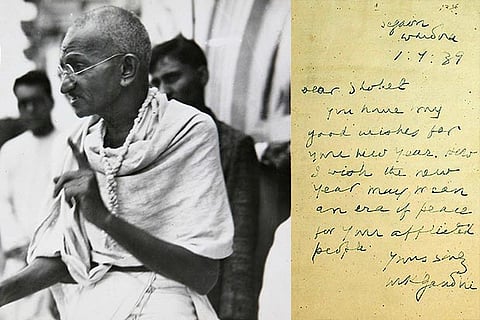 Segaon
Wardha
1.9.39
Dear Shohet
You have my
good wishes for
your new year. How
I wish the new
year may mean
an era of peace
for your afflicted
people.
Yours
MKGandhi